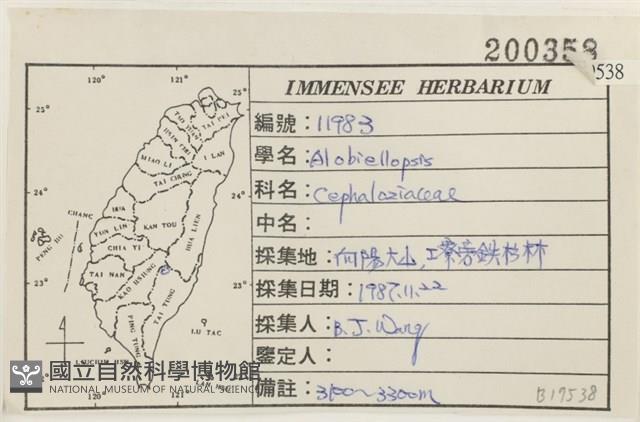 200358
9538
IMMENSEE HERBARIUM
編號：11983
學名：Alobiellopsis
科名：Cephaloziaceae
中名：
採集地：向陽大山，工寮旁鉄杉林
採集日期：1987.11.22
採集人：B. J. Wang
鑒定人：
備註：3100～3300m
B19538
120° 121°
25° 25°
TAI PEI
I LAN
MIAO LI
TAI CHUNG
24° 24°
CHANG HUA
HUA LIEN
PENG HU
YUN LIN
NAN TOU
CHIA YI
TAI NAN
KAO HSIUNG
TAI TUNG
23° 23°
PING TUNG
LU TAO
LAN
120° 121°
國立自然科學博物館
NATIONAL MUSEUM OF NATURAL SCIENCE